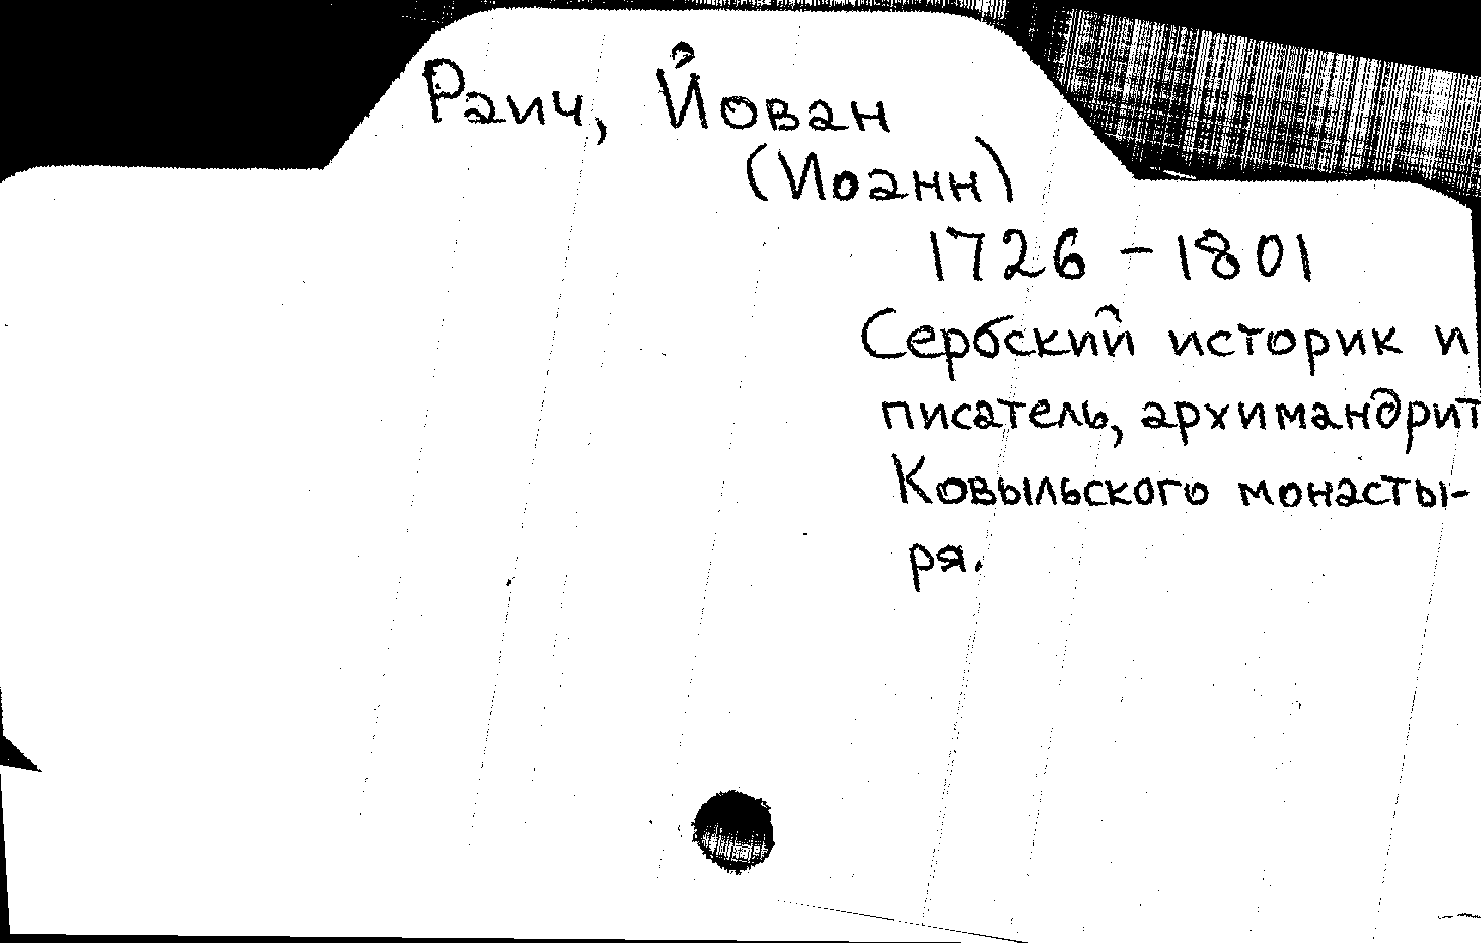 Раич, Йован
(Иоанн)
1726 - 1801
Сербский историк и
писатель, архимандрит
Ковыльского монасты-
ря.